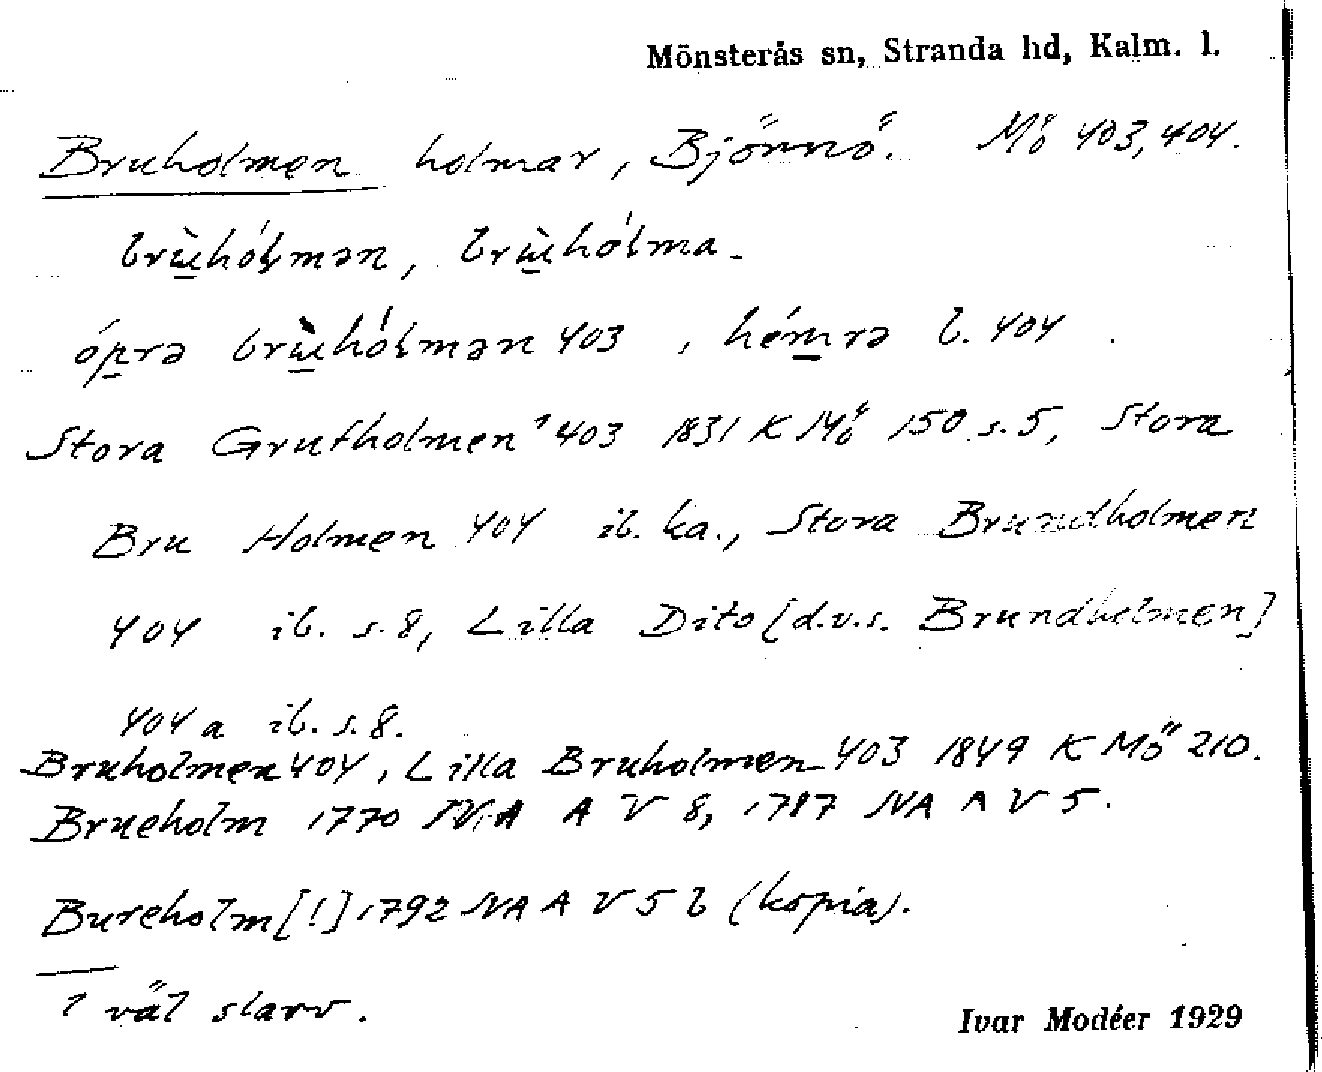 Mönsterås sn, Stranda hd, Kalm. l.
Bruholmen holmar, Björnö. Mö 403, 404.
brùhólmən, brùhólma.
óprə brùhólmən 403, hémrə b. 404.
Stora Grufholmen¹ 403 1831 K Mö 150 s. 5, Stora
Bru Holmen 404 ib. ka., Stora Brundholmen
404 ib. s. 8, Lilla Dito [d.v.s. Brundholmen]
404 a ib. s. 8.
Bruholmen 404, Lilla Bruholmen 403 1849 K Mö 210.
Brueholm 1770 NA A V 8, 1787 NA A V 5.
Bureholm [!] 1792 NA A V 5 b (kopia).
1 väl slarv.
Ivar Modéer 1929